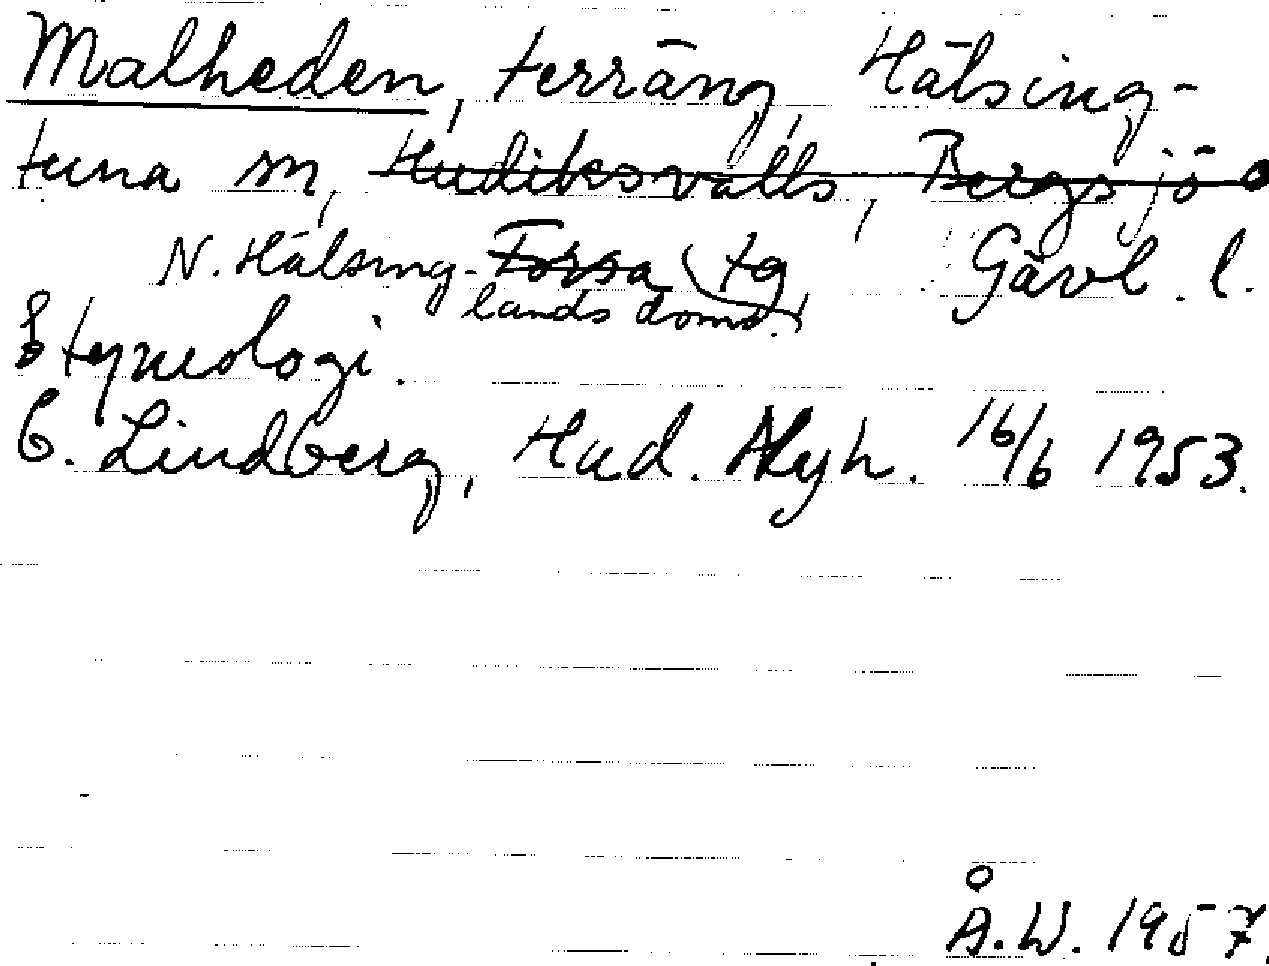 Malheden, terräng, Hälsing-
tuna sn, Hudiksvalls, Bergsjö o
N. Hälsing- Forsa tg Gävl. l.
lands doms.
Etymologi.
C. Lindberg, Hud. Nyh. 16/6 1953.
Å.W. 1957.